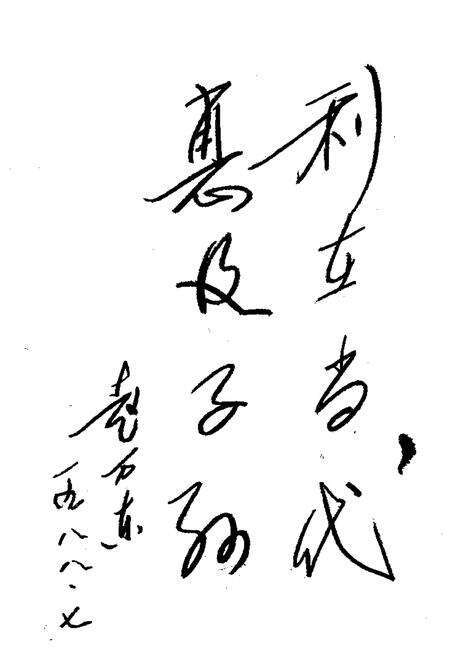 利在当代，
惠及子孙
万东
一九八八·七